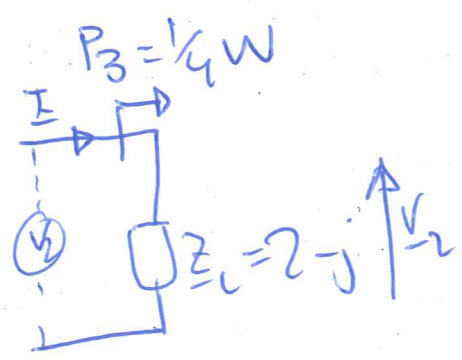 P₃ = 1/4 W
I
V₂
Z_L = 2 - j
V₂